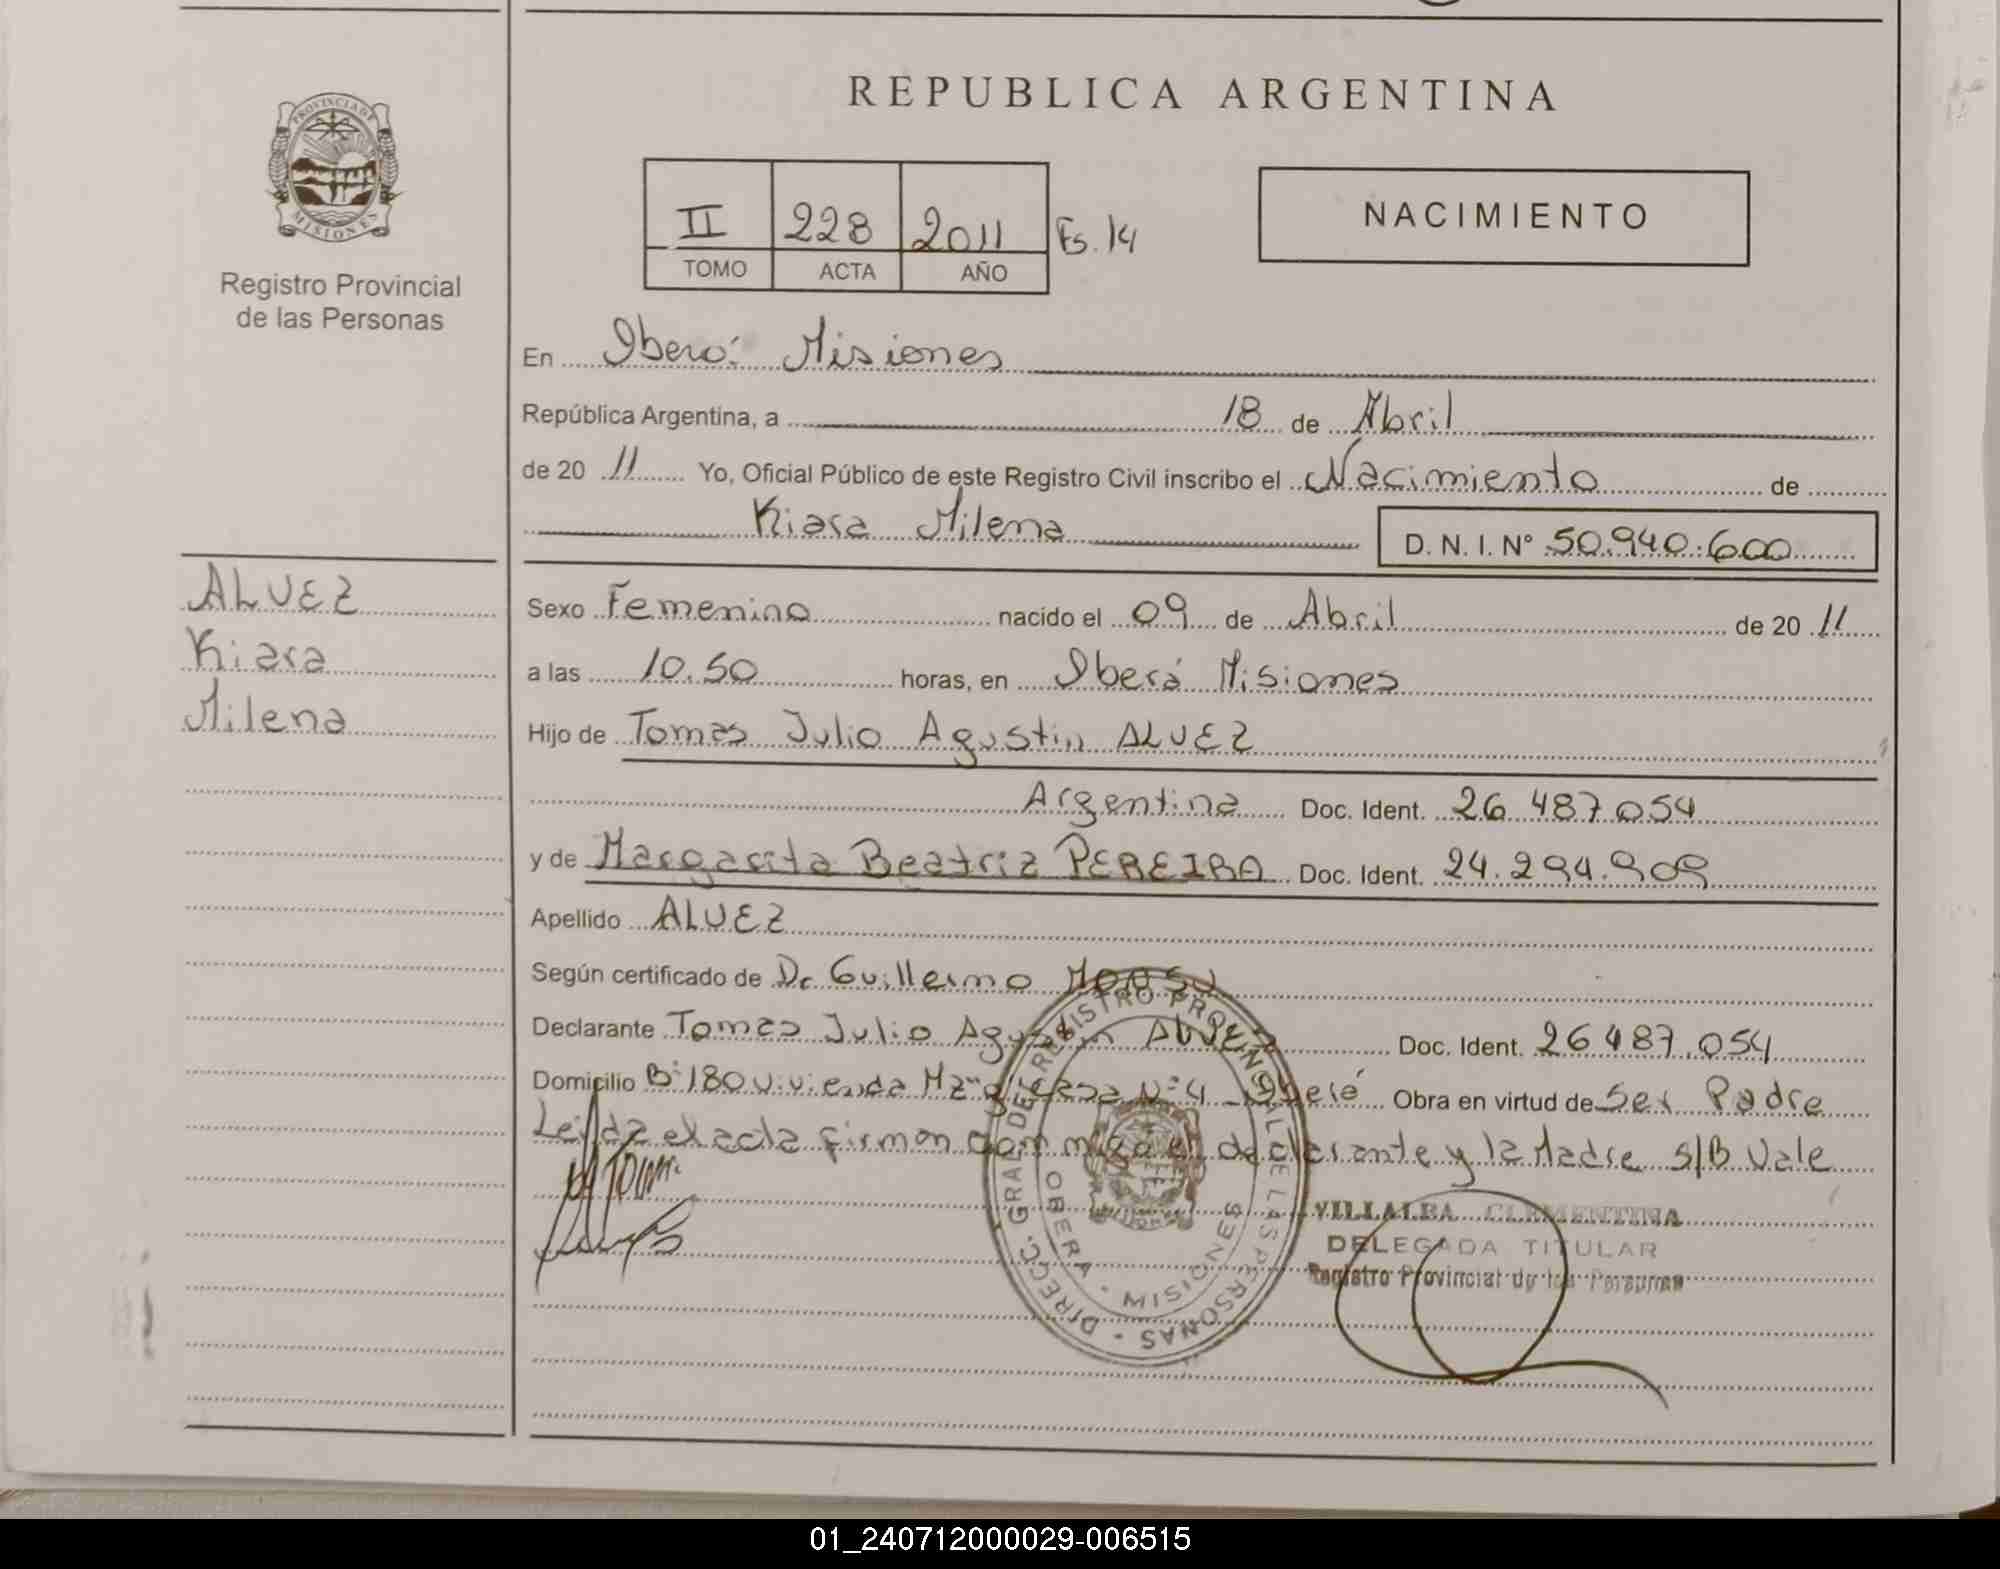 REPUBLICA ARGENTINA
PROVINCIA DE MISIONES
Registro Provincial
de las Personas
II 228 2011 Fs. 14
TOMO ACTA AÑO
NACIMIENTO
En Oberá: Misiones
República Argentina, a 18 de Abril
de 20 11 Yo, Oficial Público de este Registro Civil inscribo el Nacimiento de
Kiara Milena D. N. I. Nº 50.940.600
ALVEZ
Kiara
Milena
Sexo Femenino nacido el 09 de Abril de 20 11
a las 10.50 horas, en Oberá Misiones
Hijo de Tomas Julio Agustin ALVEZ
Argentina Doc. Ident. 26 487.054
y de Margarita Beatriz PEREIRA Doc. Ident. 24.294.909
Apellido ALVEZ
Según certificado de Dr Guillermo
Declarante Tomas Julio Agustin ALVEZ Doc. Ident. 26 487.054
Domicilio Bº 180 vivienda Mz casa Nº 4 Oberá Obra en virtud de Ser Padre
Leida el acta firman conmigo el declarante y la Madre S/B Vale
DIRECC. GRAL. DEL REGISTRO PROVINCIAL DE LAS PERSONAS
OBERA - MISIONES
VILLALBA CLEMENTINA
DELEGADA TITULAR
Registro Provincial de las Personas
01_240712000029-006515